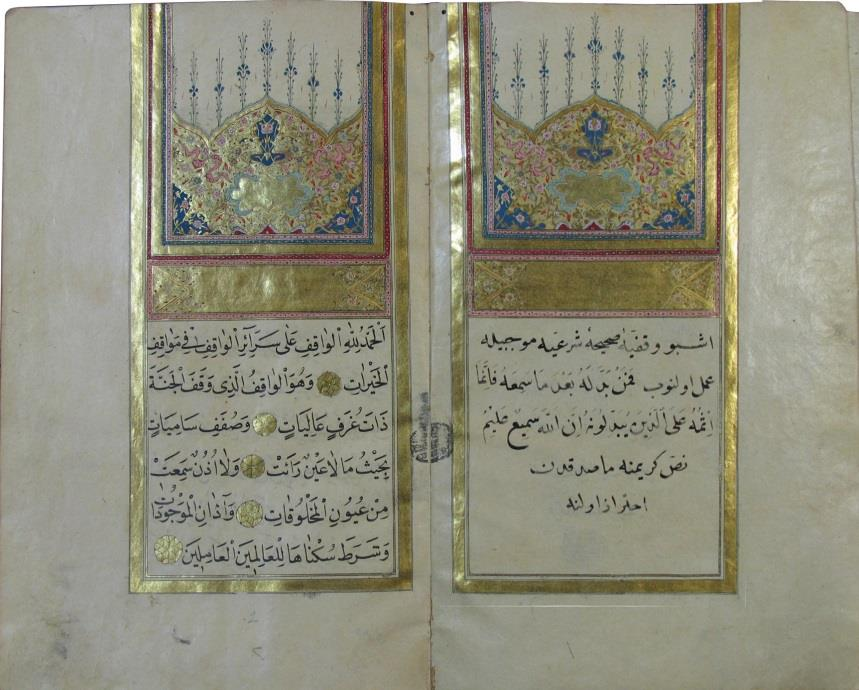 اشبو وقفیهٔ صحیحهٔ شرعیه موجبیله
عمل اولنوب فَمَنْ بَدَّلَهُ بَعْدَ مَا سَمِعَهُ فَاِنَّمَا
اِثْمُهُ عَلَى الَّذِينَ يُبَدِّلُونَهُ اِنَّ اللهَ سَمِيعٌ عَلِيمٌ
نص كريمنه ماصدقدن
احتراز اولنه
اَلْحَمْدُ لِلّٰهِ الْوَاقِفِ عَلٰى سَرَآئِرِ الْوَاقِفِ فِي مَوَاقِفِ
الْخَيْرَاتِ وَهُوَ الْوَاقِفُ الَّذِي وَقَفَ الْجَنَّةَ
ذَاتَ غُرَفٍ عَالِيَاتٍ وَصُفَفٍ سَامِيَاتٍ
بِحَيْثُ مَا لَا عَيْنٌ رَأَتْ وَلَا اُذُنٌ سَمِعَتْ
مِنْ عُيُونِ الْمَخْلُوقَاتِ وَآذَانِ الْمَوْجُودَاتِ
وَشَرَطَ سُكْنَاهَا لِلْعَالِمِينَ الْعَامِلِينَ